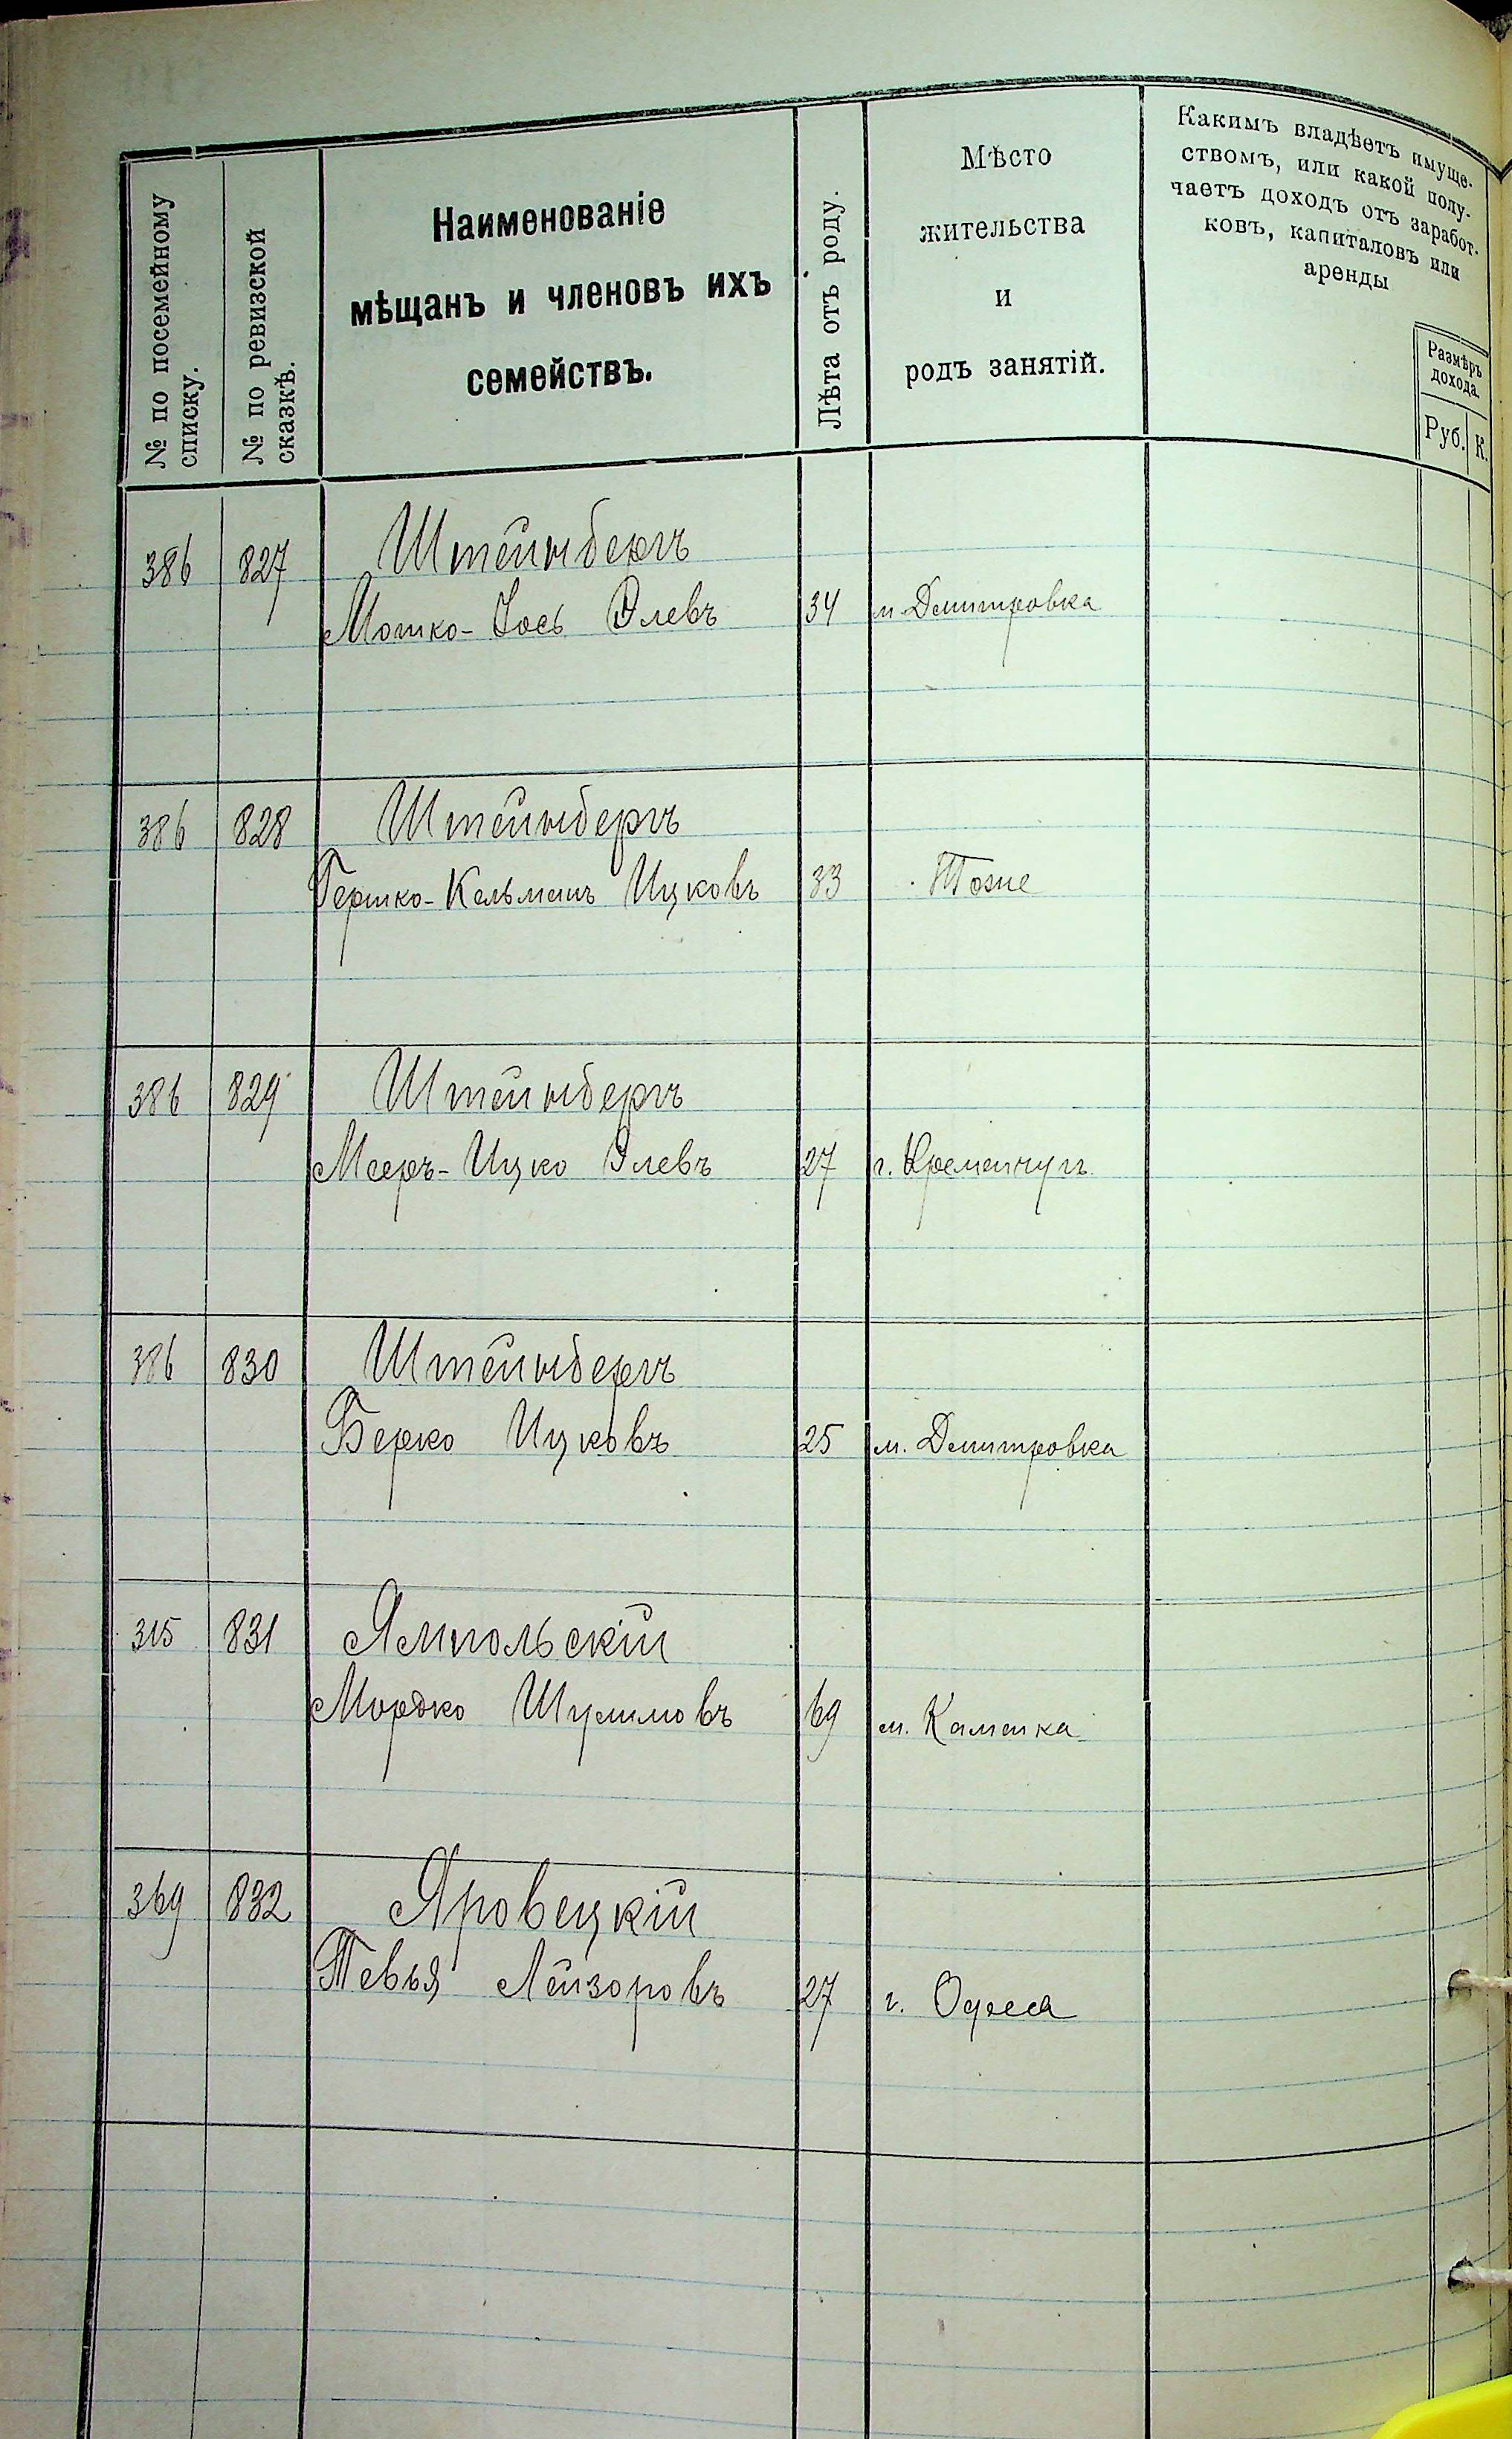 № по посемейному
списку.
№ по ревизской
сказкѣ.
Наименованіе
мѣщанъ и членовъ ихъ
семействъ.
Лѣта отъ роду.
Мѣсто
жительства
и
родъ занятій.
Какимъ владѣетъ имуще-
ствомъ, или какой полу-
чаетъ доходъ отъ заработ-
ковъ, капиталовъ или
аренды
Размѣръ
дохода.
Руб. К.
386 827 Штейнбергъ
Мотко-Іось Элевъ 34 м. Дмитровка
386 828 Штейнбергъ
Гершко-Кельманъ Ицковъ 33 Тоже
386 829 Штейнбергъ
Мееръ-Ицко Элевъ 27 г. Кременчугъ
386 830 Штейнбергъ
Берко Ицковъ 25 м. Дмитровка
315 831 Ямпольскій
Мордко Шулимовъ 69 м. Каменка
369 832 Яровецкій
Тевья Лейзоровъ 27 г. Одесса